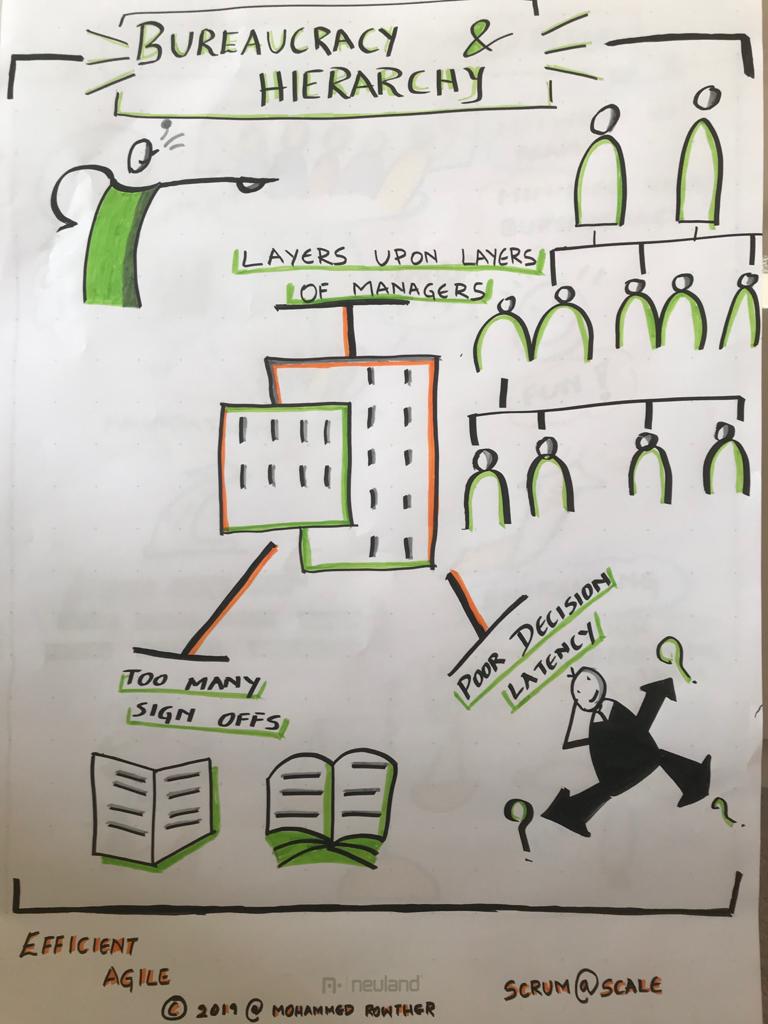 BUREAUCRACY &
HIERARCHY
LAYERS UPON LAYERS
OF MANAGERS
TOO MANY
SIGN OFFS
POOR DECISION
LATENCY
EFFICIENT
AGILE
neuland
© 2019 @ MOHAMMED ROWTHER
SCRUM@SCALE